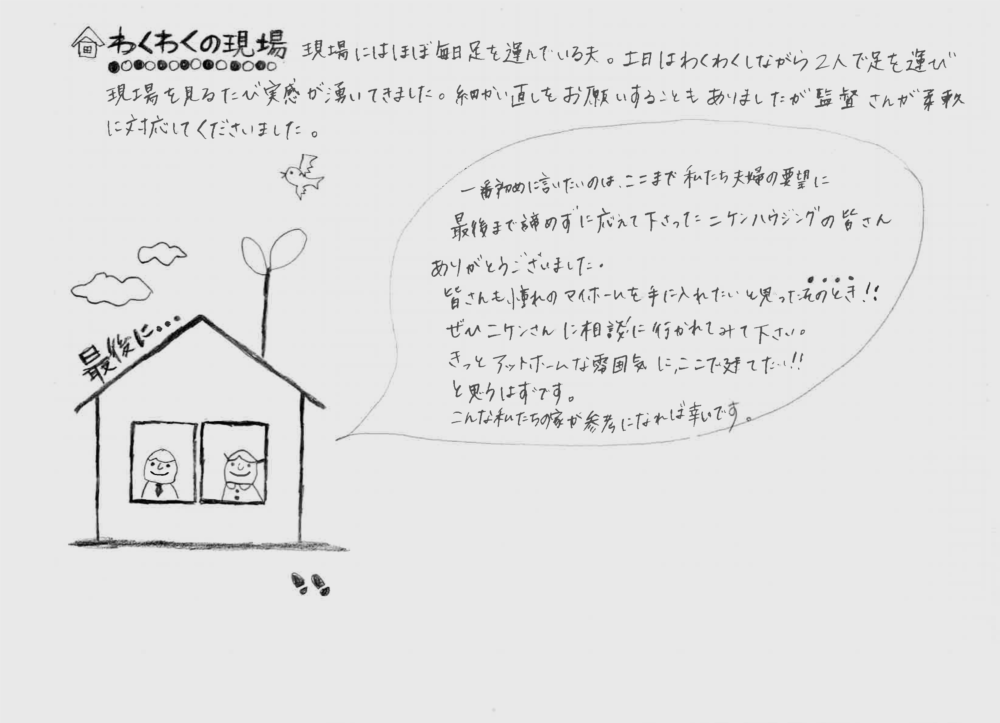 わくわくの現場 現場にはほぼ毎日足を運んでいる夫。土日はわくわくしながら2人で足を運び
現場を見るたび実感が湧いてきました。細かい直しをお願いすることもありましたが監督さんが柔軟
に対応してくださいました。
一番初めに言いたいのは、ここまで私たち夫婦の要望に
最後まで諦めずに応えて下さったニケンハウジングの皆さん
ありがとうございました。
皆さんも、憧れのマイホームを手に入れたいと思ったそのとき!!
ぜひニケンさんに相談に行かれてみて下さい。
きっとアットホームな雰囲気に、ここで建てたい!!
と思うはずです。
こんな私たちの家が参考になれば幸いです。
最後に...